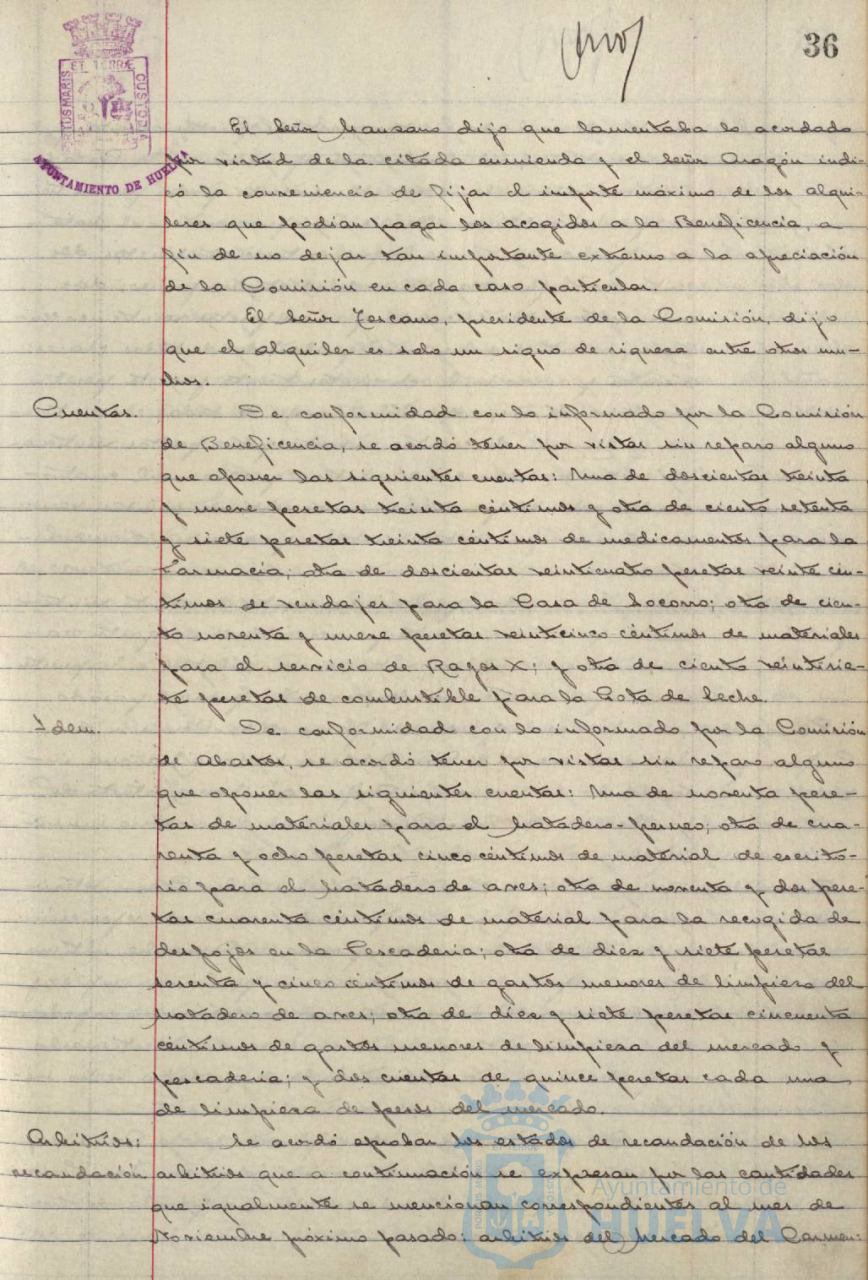 36
ET TERRÆ
PORTUS MARIS
CUSTODIA
AYUNTAMIENTO DE HUELVA
El Señor Manzano dijo que lamentaba lo acordado
por virtud de la citada enmienda y el Señor Aragón indi-
có la conveniencia de fijar el importe máximo de los alqui-
leres que podían pagar los acogidos a la Beneficencia, a
fin de no dejar tan importante extremo a la apreciación
de la Comisión en cada caso particular.
El Señor Tescano, presidente de la Comisión, dijo
que el alquiler es solo un signo de riqueza entre otros mu-
chos.
Cuentas.
De conformidad con lo informado por la Comisión
de Beneficencia, se acordó tener por vistas sin reparo alguno
que oponer las siguientes cuentas: Una de doscientas treinta
y nueve pesetas treinta céntimos y otra de ciento setenta
y siete pesetas treinta céntimos de medicamentos para la
Farmacia; otra de doscientas veinticuatro pesetas veinte cén-
timos de vendajes para la Casa de Socorro; otra de cien-
to noventa y nueve pesetas veinticinco céntimos de materiales
para el servicio de Rayos X; y otra de ciento veintisie-
te pesetas de combustible para la Gota de Leche.
Idem.
De conformidad con lo informado por la Comisión
de Abastos, se acordó tener por vistas sin reparo alguno
que oponer las siguientes cuentas: Una de noventa pese-
tas de materiales para el Matadero-perneo; otra de cua-
renta y ocho pesetas cinco céntimos de material de escrito-
rio para el Matadero de aves; otra de noventa y dos pese-
tas cuarenta céntimos de material para la recogida de
despojos en la Pescadería; otra de diez y siete pesetas
sesenta y cinco céntimos de gastos menores de limpieza del
Matadero de aves; otra de diez y siete pesetas cincuenta
céntimos de gastos menores de limpieza del mercado y
pescadería; y dos cuentas de quince pesetas cada una
de limpieza de pesos del mercado.
Arbitrios:
recaudación
Se acordó aprobar los estados de recaudación de los
arbitrios que a continuación se expresan por las cantidades
que igualmente se mencionan correspondientes al mes de
Noviembre próximo pasado: arbitrios del Mercado del Carmen:
Ayuntamiento de
HUELVA